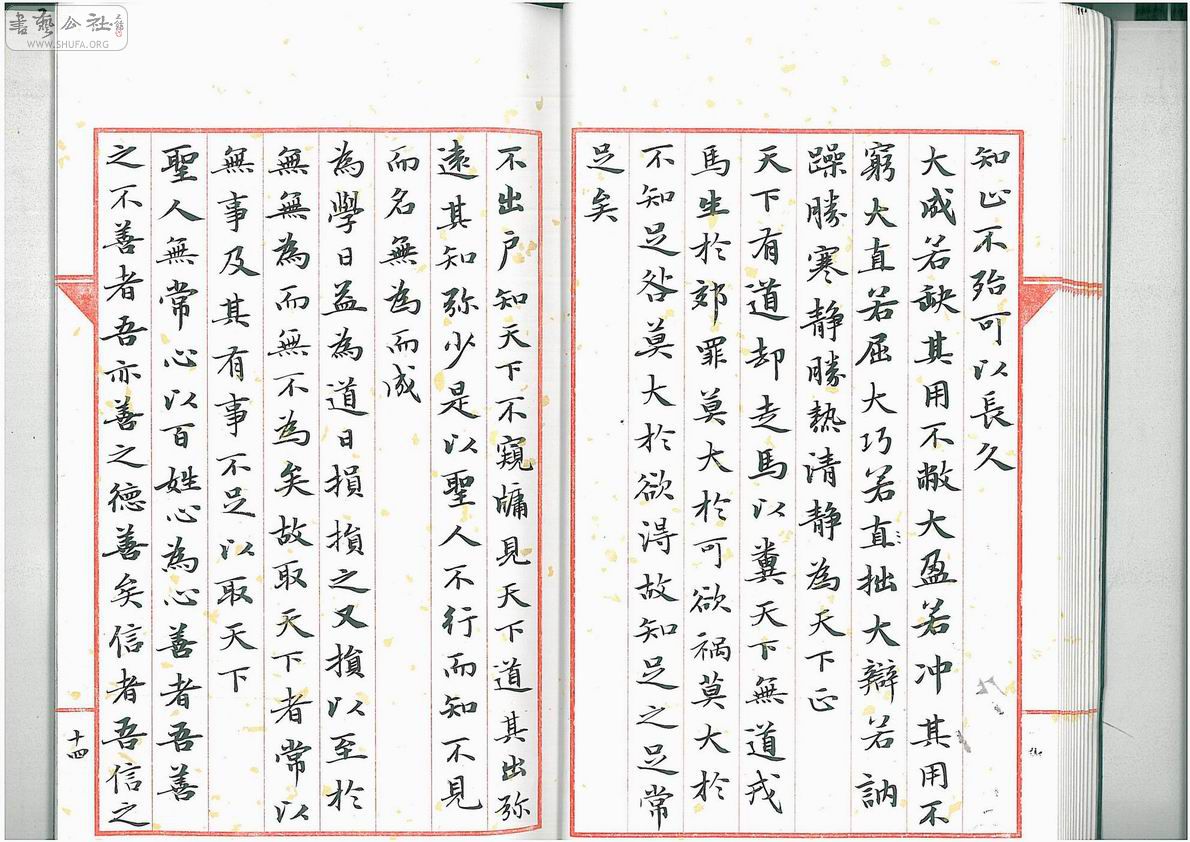 知止不殆可以長久
大成若缺其用不敝大盈若冲其用不
窮大直若屈大巧若直拙大辯若訥
躁勝寒静勝熱清静為天下正
天下有道却走馬以糞天下無道戎
馬生於郊罪莫大於可欲祸莫大於
不知足咎莫大於欲得故知足之足常
足矣
不出户知天下不窺牖見天下道其出弥
遠其知弥少是以聖人不行而知不見
而名無為而成
為學日益為道日損損之又損以至於
無無為而無不為矣故取天下者常以
無事及其有事不足以取天下
聖人無常心以百姓心為心善者吾善
之不善者吾亦善之德善矣信者吾信之
十四
書藝公社
WWW.SHUFA.ORG